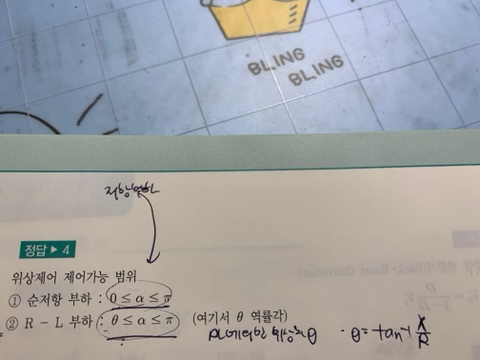 BLING
BLING
정답 ▶ 4
위상제어 제어가능 범위
① 순저항 부하 : 0 ≤ α ≤ π
② R - L 부하 : θ ≤ α ≤ π (여기서 θ 역률각)
θ = tan⁻¹ X/R